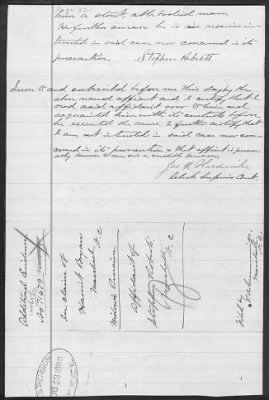 him a stout, ablebodied man
He further swears he is in nowise in-
terested in said case nor concerned in its
prosecution. Stephen Roberts
Sworn to and subscribed before me this day by the
above named affiant and I certify that I
read said affidavit over to him and
acquainted him with its contents before
he executed the same. I further certify that
I am not interested in said case nor con-
cerned in its prosecution & that affiant is person-
ally known to me as a credible person
Clerk Superior Court
Additional Evidence
No 71,679
In claim of
Harriet Bryan
Marshall N C
Widow's Pension
Affidavit of
Stephen Roberts
Marshall N C
Filed by